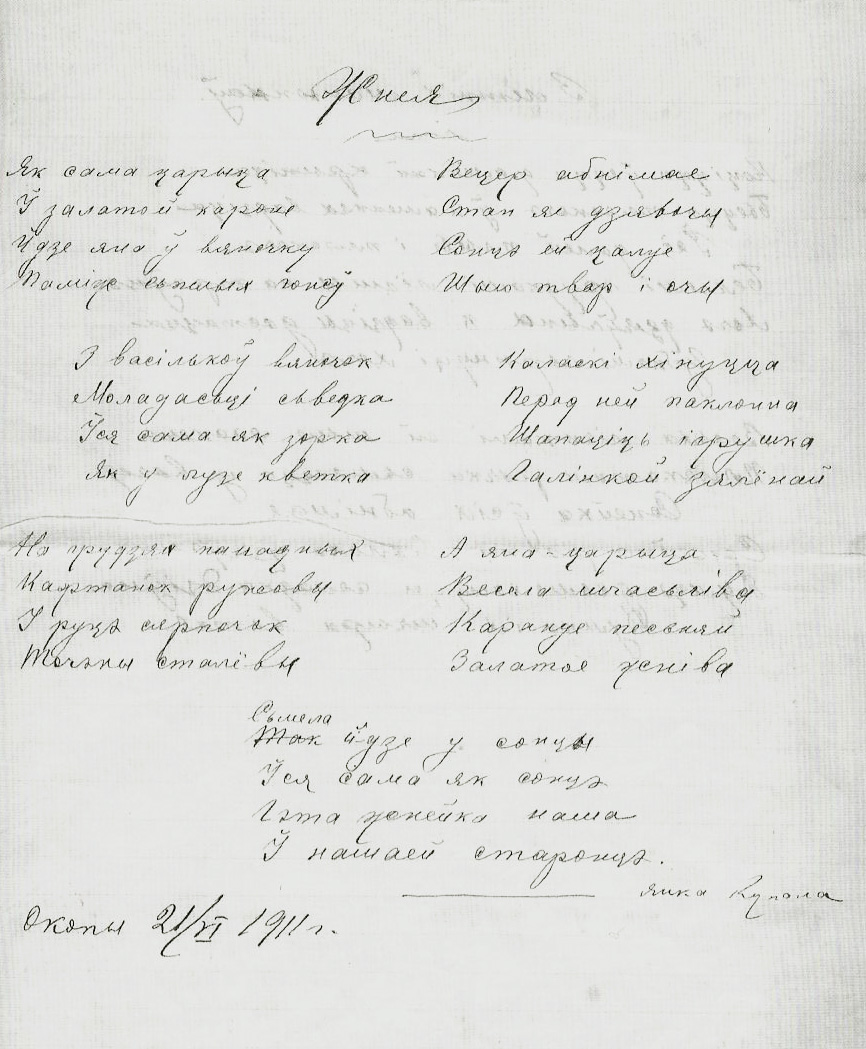 Жнея
Як сама царыца
Ў залатой кароне
Йдзе яна ў вяночку
Паміж сьпелых гонеў
З васількоў вяночак
Моладасьці сьведка
Ўся сама як зорка
Як у лузе кветка
На грудзях панадных
Кафтанок ружовы
Ў руцэ сярпочок
Точэны сталёвы
Вецер абнімае
Стан яе дзявочы
Сонцэ ей цалуе
Шыю твар і очы
Каласкі хінуцца
Перад ней паклонна
Шапаціць ігрушка
Галінкой зялёнай
А яна - царыца
Весела шчасьліва
Карануе песьняй
Залатое жніва
Сьмела
Так йдзе у сонцы
Ўся сама як сонцэ
Гэта жнейка наша
Ў нашаей старонцэ.
Янка Купала
Окопы 21/VI 1911 г.